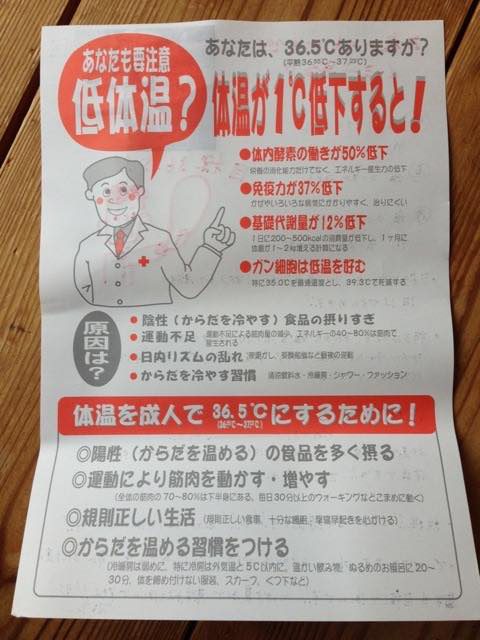 あなたも要注意
低体温？
あなたは、36.5℃ありますか？
体温が1℃低下すると！
●体内酵素の働きが50%低下
栄養の消化能力だけでなく、エネルギー産生力の低下
●免疫力が37%低下
かぜやいろいろな病気にかかりやすく、治りにくい
●基礎代謝量が12%低下
1日に200～500kcalの消費量が低下し、1ヶ月に
体脂が1～2kg増える計算になる
●ガン細胞は低温を好む
特に35.0℃を最適温度とし、39.3℃で死滅する
原因は？
・陰性（からだを冷やす）食品の摂りすぎ
・運動不足 運動不足による筋肉量の減少、エネルギーの40～80%は筋肉で
産生される
・日内リズムの乱れ 夜更かし、昼夜
・からだを冷やす習慣 清涼飲料水・冷暖房・シャワー・ファッション
体温を成人で36.5℃にするために！
◎陽性（からだを温める）の食品を多く摂る
◎運動により筋肉を動かす・増やす
（全体の筋肉の70～80%は下半身にある。毎日30分以上のウォーキングなどこまめに動く）
◎規則正しい生活（規則正しい食事、十分な睡眠、早寝早起きを心がける）
◎からだを温める習慣をつける
（冷暖房は弱めに、特に冷房は外気温と5℃以内に、温かい飲み物、ぬるめのお風呂に20～
30分、体を締め付けない服装、スカーフ、くつ下など）